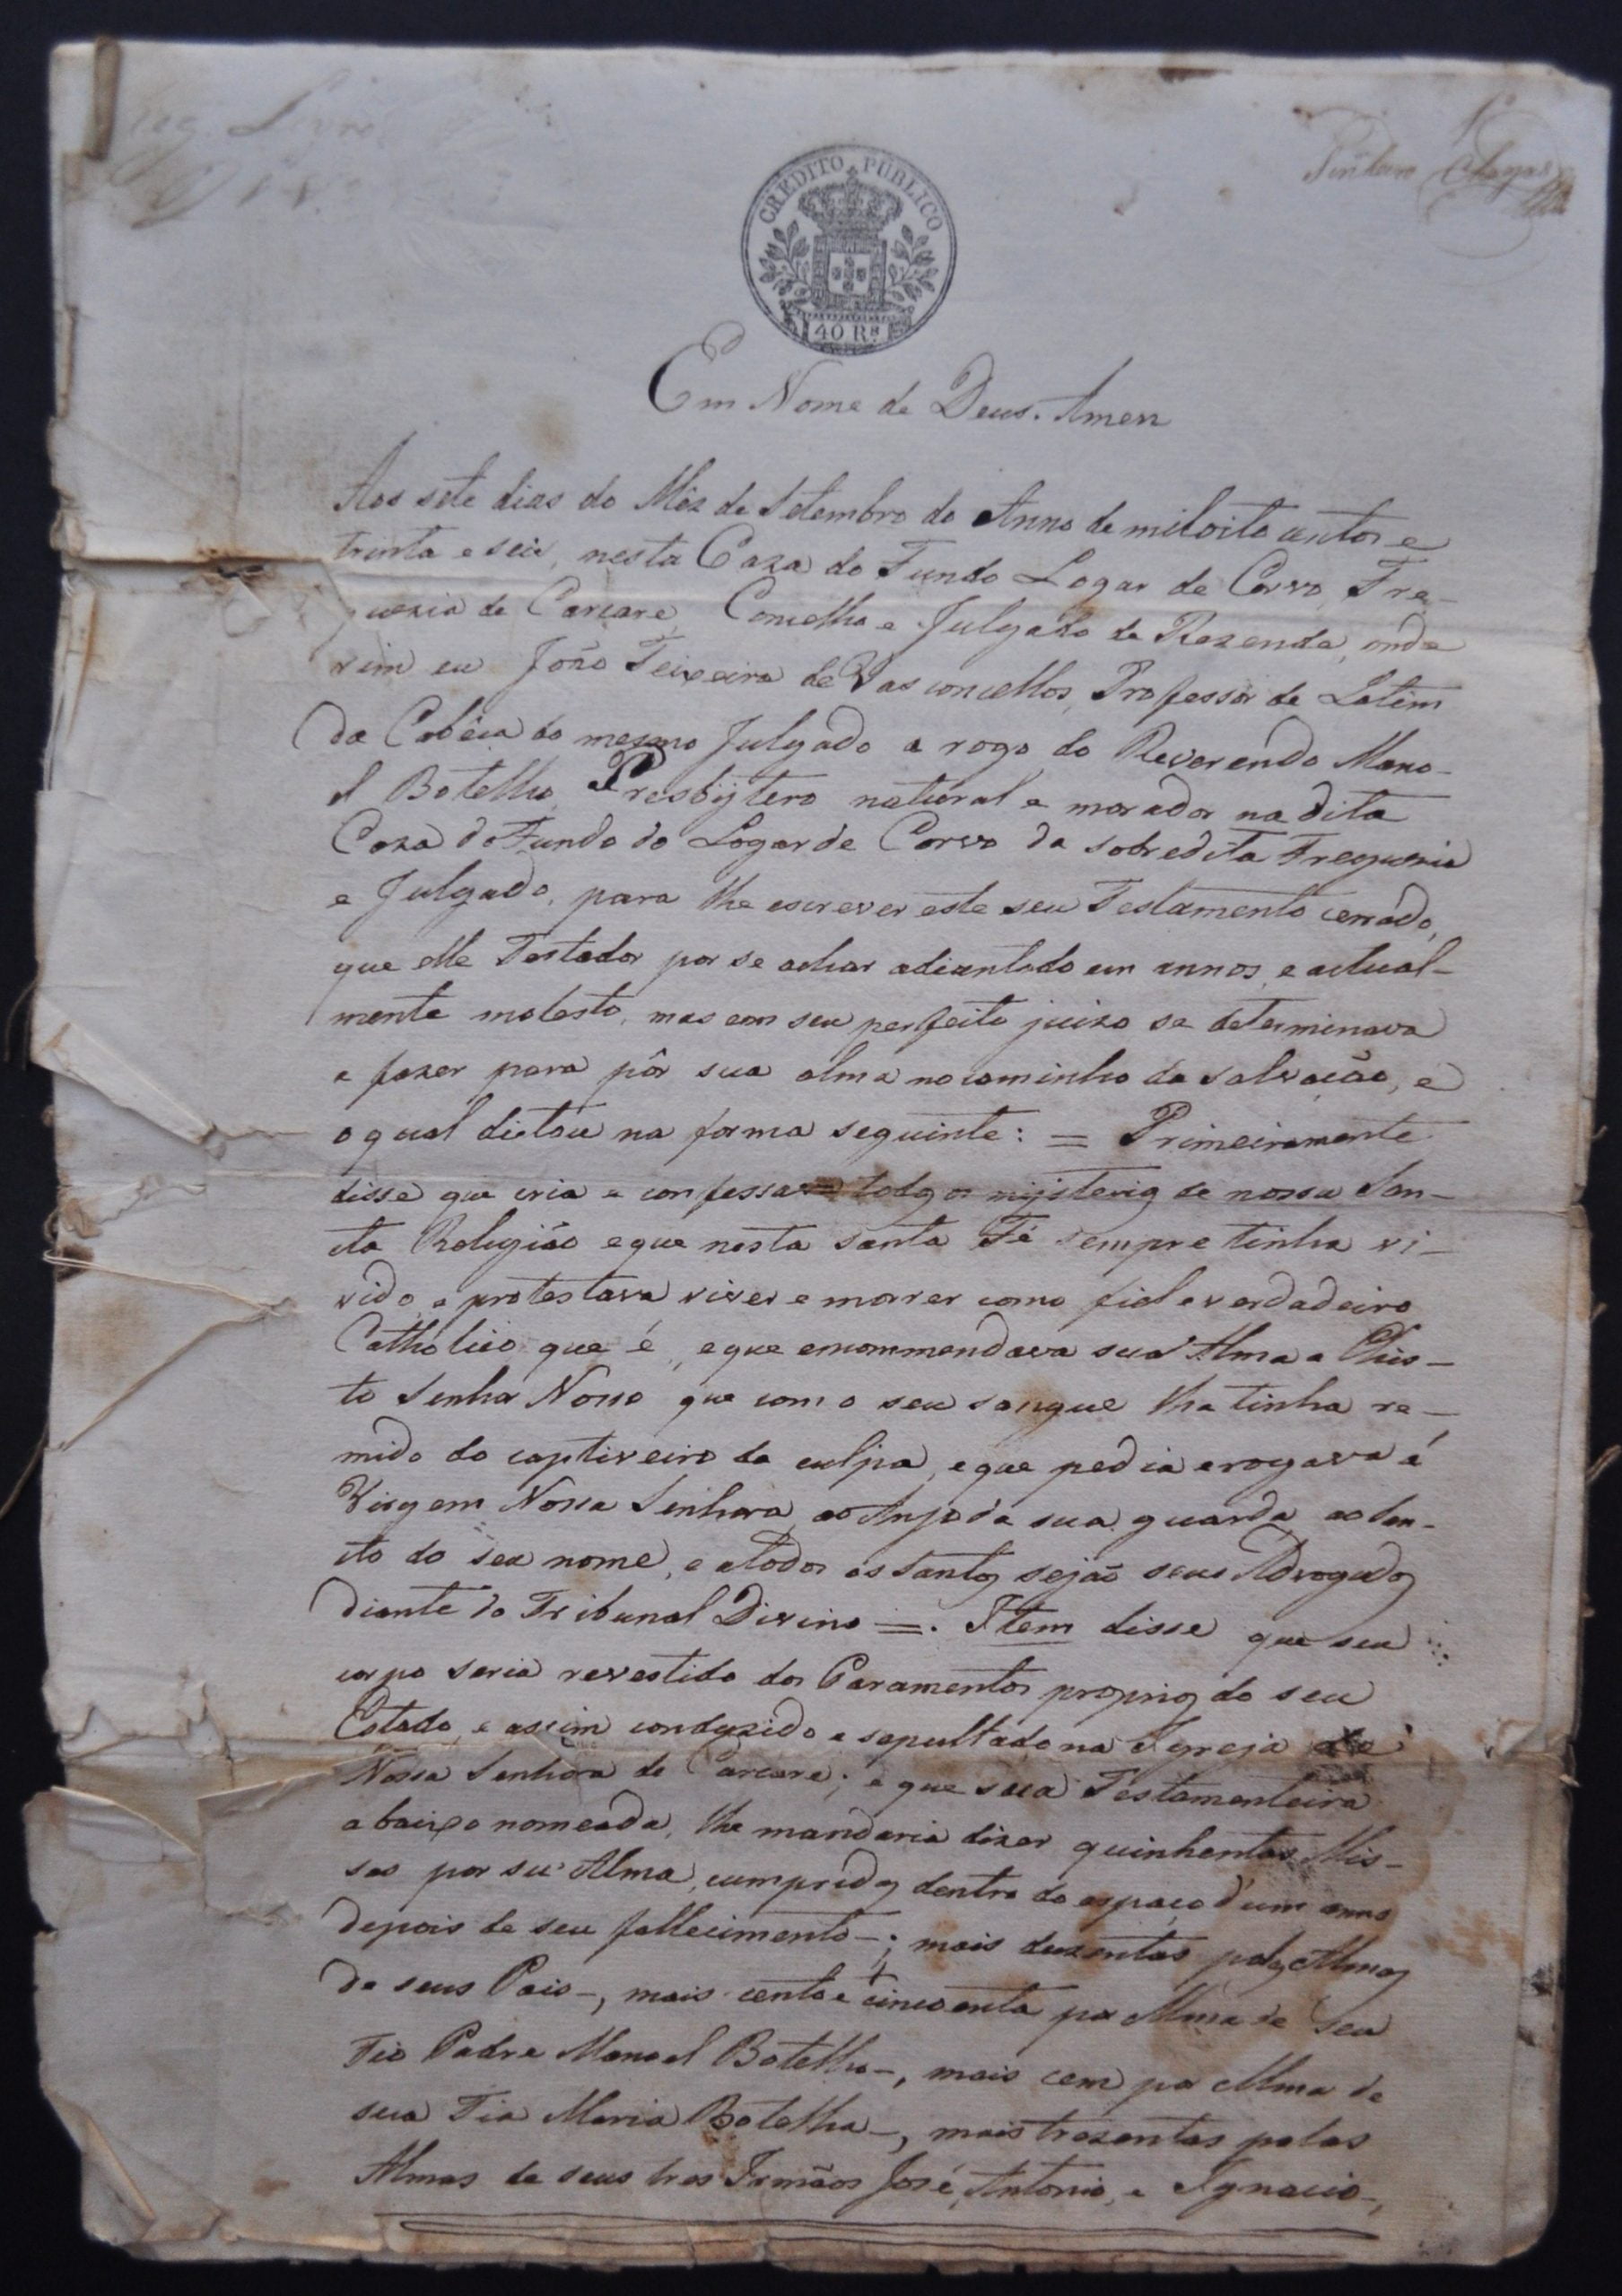 1
Pinheiro Chagas
CREDITO PUBLICO
40 Rs
Em Nome de Deus. Amen
Aos sete dias do Mêz de Setembro do Anno de mil oito centos e
trinta e seis, nesta Caza do Fundo Logar de Corvo, Fre-
guezia de Carcare, Concelho e Julgado de Rezende, onde
vim eu João Teixeira de Vasconcellos, Professor de Latim
da Cabêça do mesmo Julgado a rogo do Reverendo Mano-
el Botelho, Presbÿtero natural e morador na dita
Caza do Fundo do Logar de Corvo da sobredita Freguezia
e Julgado, para lhe escrever este seu Testamento cerrado,
que elle Testador por se achar adiantado em annos, e actual-
mente molesto, mas em seu perfeito juizo se determinava
a fazer para pôr sua alma no caminho da salvação, e
o qual dictou na forma seguinte: = Primeiramente
disse que cria e confessava todos os mÿsterios de nossa San-
cta Religião e que nesta santa Fé sempre tinha vi-
vido, e protestava viver e morrer como fiel e verdadeiro
Catholico que é, e que encommendava sua Alma a Chris-
to Senhor Nosso que com o seu sangue lha tinha re-
mido do captiveiro da culpa, e que pedia e rogava á
Virgem Nossa Senhora, ao Anjo da sua guarda, ao San-
cto do seu nome, e a todos os Santos sejão seus Advogados
diante do Tribunal Divino =. Item disse que seu
corpo seria revestido dos Paramentos proprios do seu
Estado, e assim conduzido e sepultado na Igreja de
Nossa Senhora de Carcare; e que sua Testamenteira
abaixo nomeada, lhe mandaria dizer quinhentas Mis-
sas por su' Alma, cumpridas dentro do espaço d'um anno
depois de seu fallecimento -; mais duzentas pelas Almas
de seus Pais -, mais cento e cincoenta por Alma de seu
Tio Padre Manoel Botelho -, mais cem por Alma de
sua Tia Maria Botelha -, mais trezentas pelas
Almas de seus tres Irmãos José, Antonio, e Ignacio -,